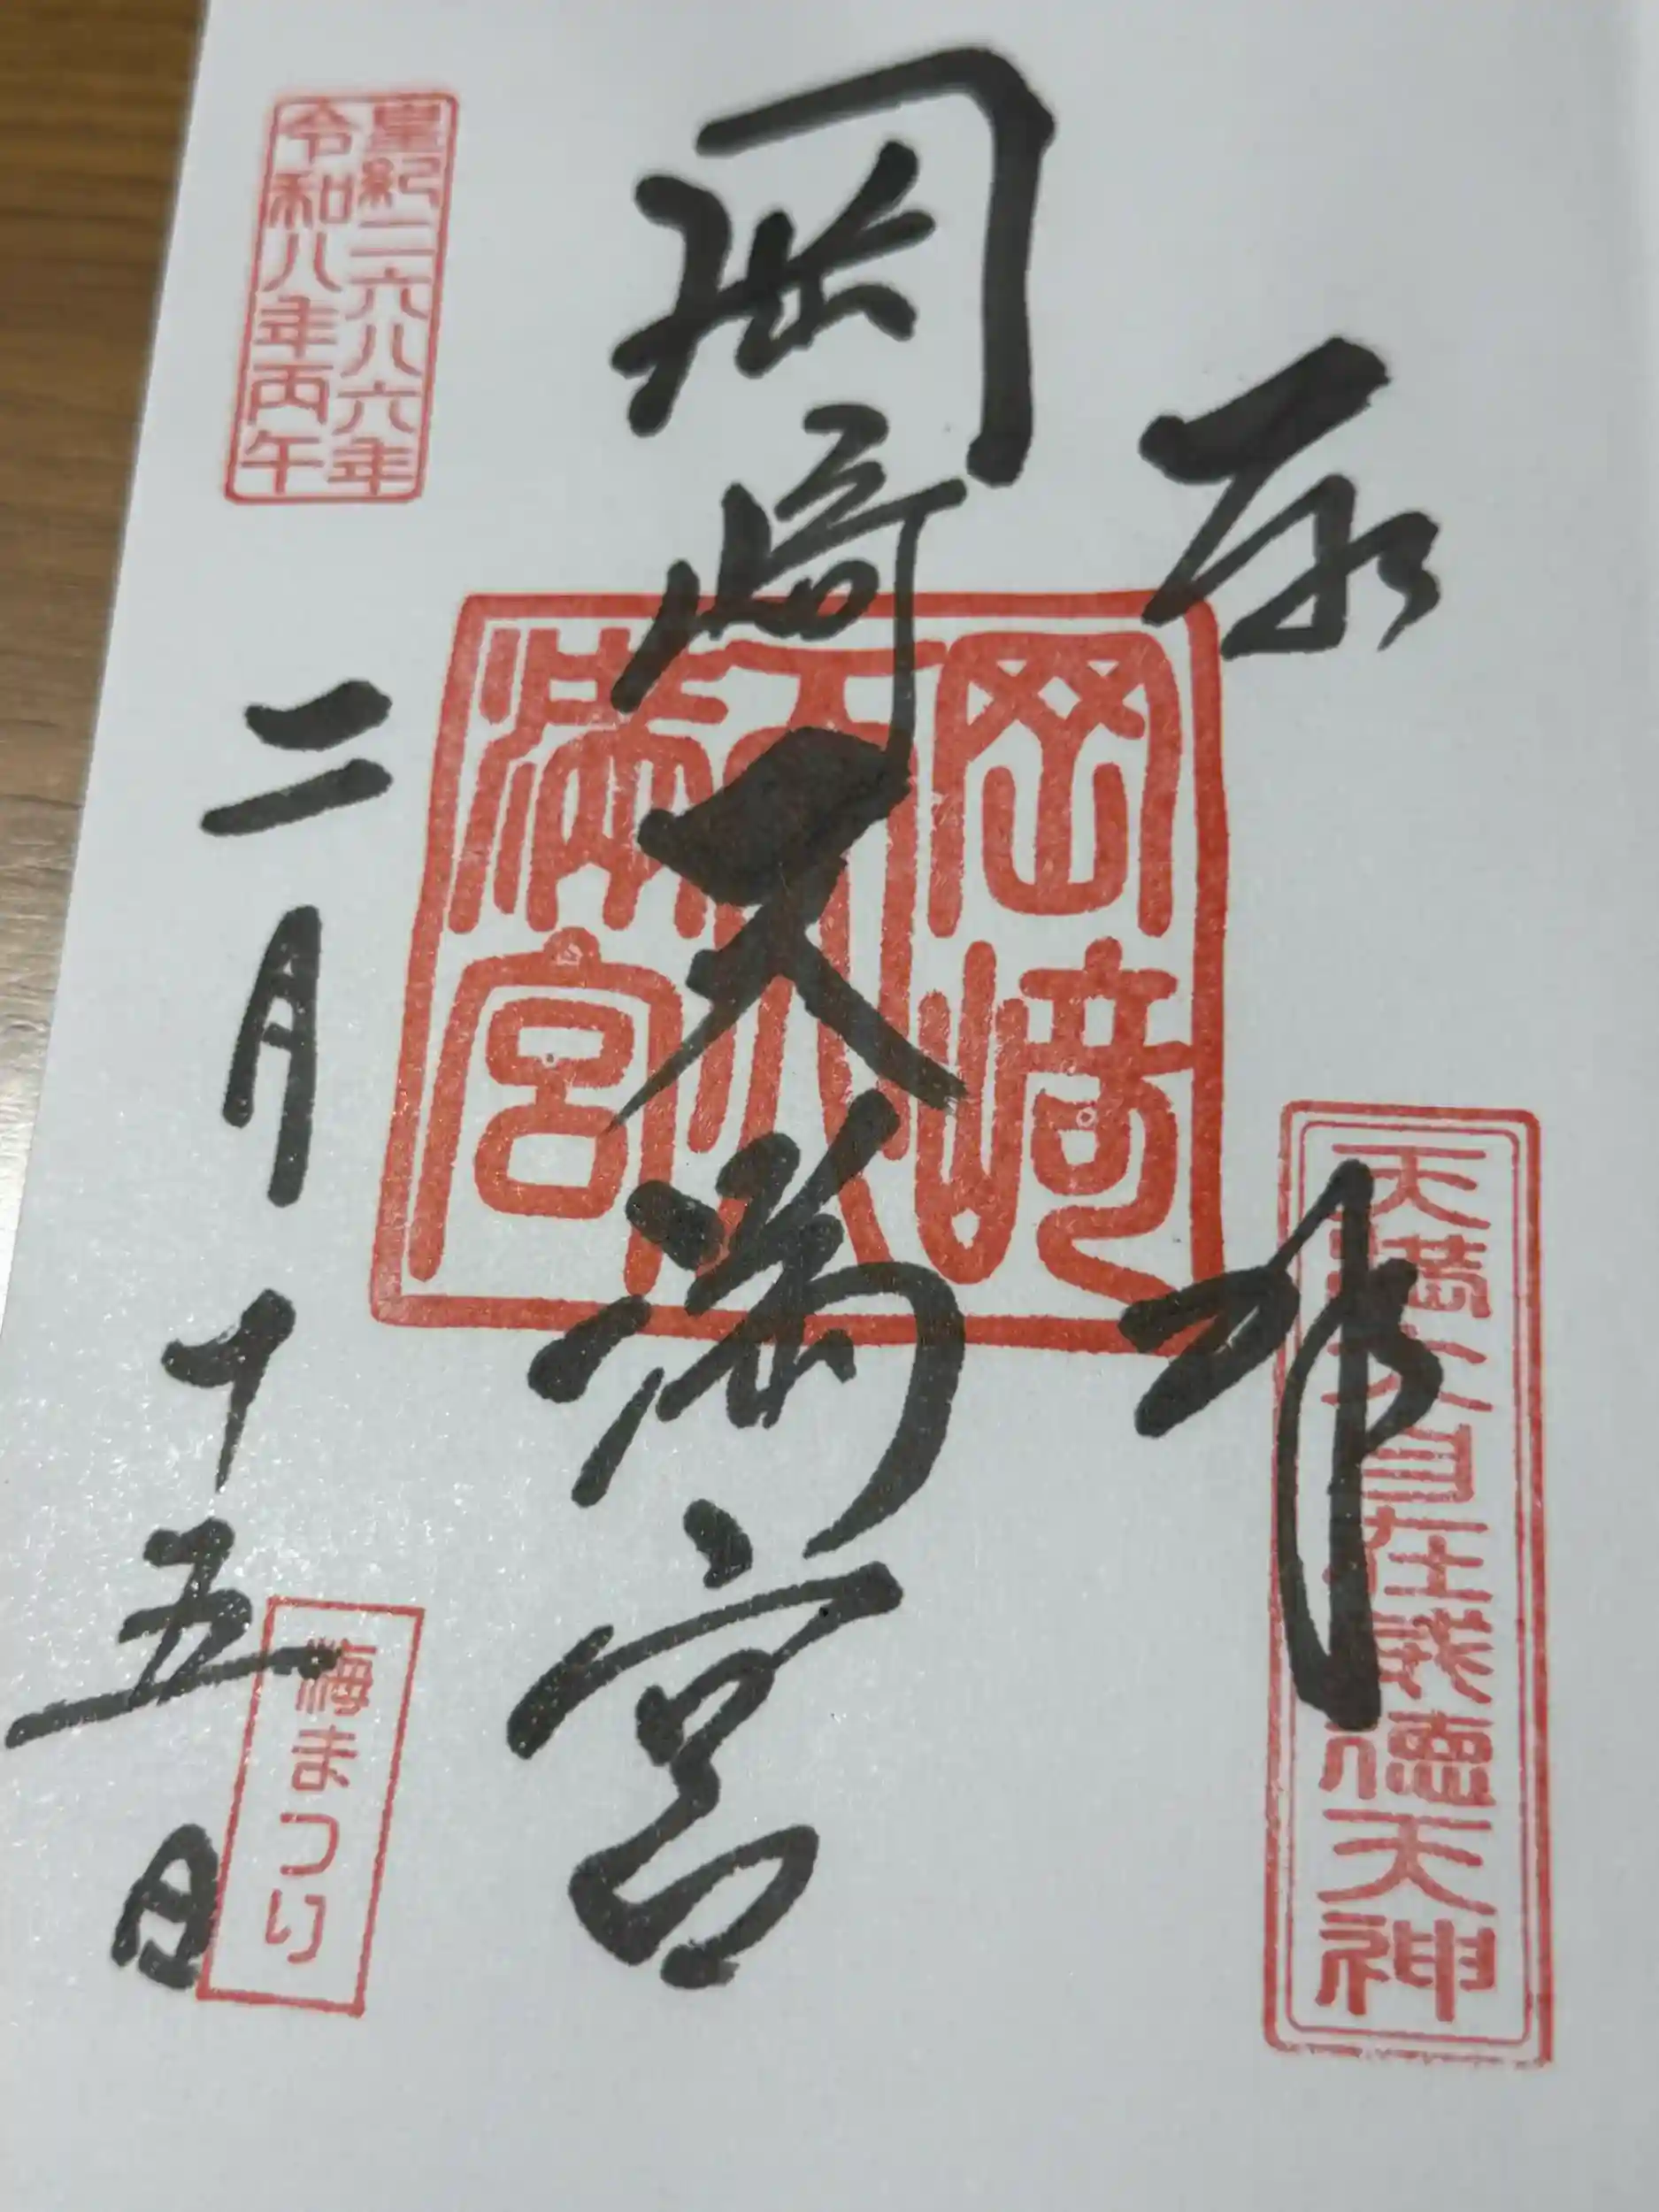 奉拝
天満大自在威徳天神
岡﨑天満宮
岡﨑
天
満宮
皇紀二六八六年
令和八年丙午
二月十五日
梅まつり